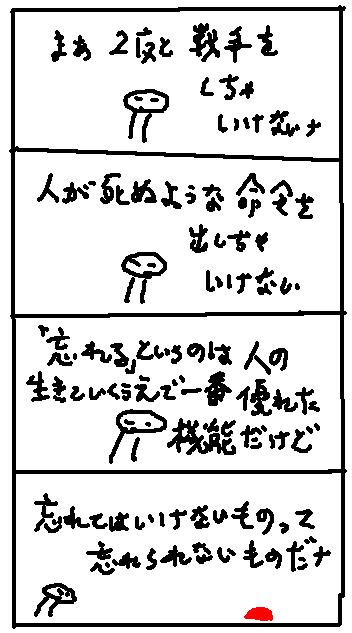 まぁ 2度と 戦争を
くちゃ
いけないナ
人が死ぬような 命令を
出しちゃ
いけない
「忘れる」というのは 人の
生きていくうえで一番 優れた
機能だけど
忘れてはいけないものって
忘れられないものだナ